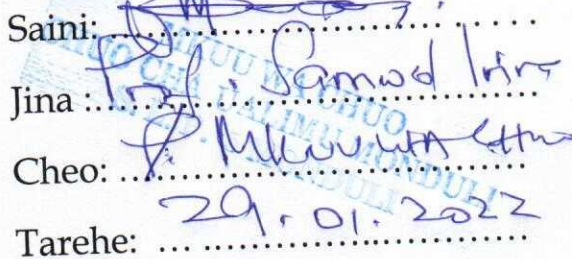 Saini: ..............................
Jina : Prof. Samwel
Cheo: P. MKUU WA CHUO
Tarehe: 29.01.2022
MKUU WA CHUO
CHUO CHA UALIMU MONDULI
MONDULI